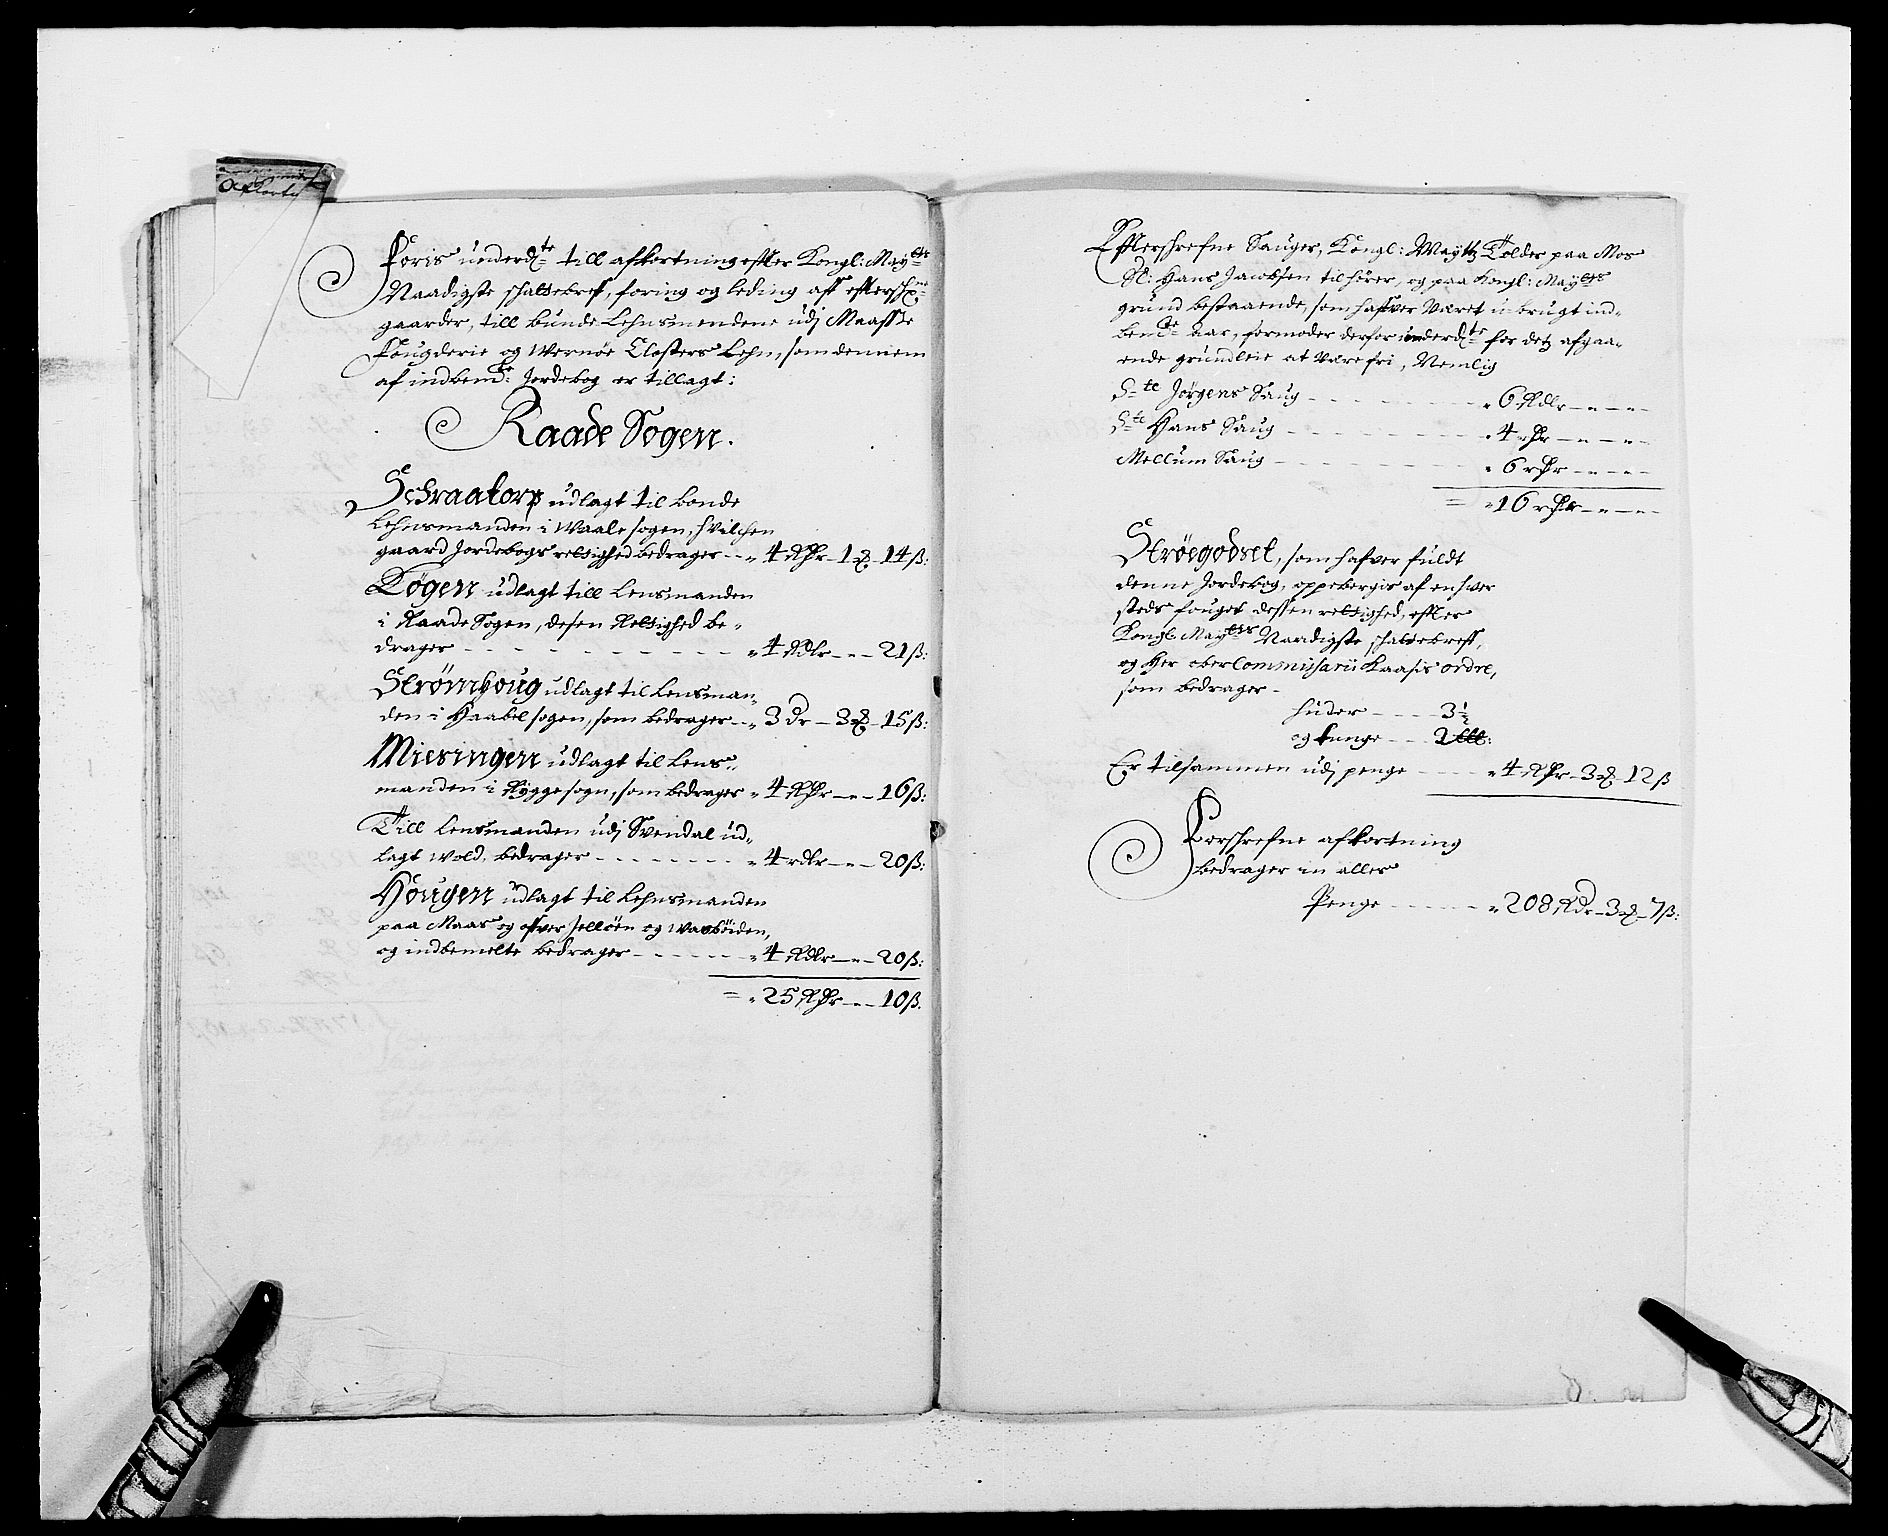 Afkorti
Foris underd:te till afkortning efter Kongl: May:tts
Naadigste schattebref, foring og leding aff efterschr:ne
gaarder, till bunde Lehnsmendene udj Maasse
Fougderie og Wernøe Closters Lehn, som dennem
af indbem:te Jordebog er tillagt:
Raade Sogen.
Schraatorp udlagt til bonde
Lehnsmanden i Waale sogen, hvilchen
gaard Jordebogs rettighed bedrager - - „ 4 Rdr - 1 ꝫ - 14 ß:
Tøgen udlagt till Lensmanden
i Raade Sogen, desen Rettighed be„
drager - - - „ 4 Rdlr - „ - 21 ß:
Strømhoug udlagt til Lensman„
den i Haabel sogen, som bedrager - - „ 3 Dr - 3 ꝫ - 15 ß:
Miesingen udlagt til Lens„
manden i Rygge sogn, som bedrager „ 4 Rdr - „ - 16 ß:
Till Lensmanden udj Svendal ud„
lagt Wold, bedrager - - - „ 4 rdlr - „ - 20 ß:
Hougen udlagt til Lehnsmanden
paa Maas og ofver Jelløen og Warbøiden,
og indbemelte bedrager - - - „ 4 Rdlr - „ - 20 ß:
= „ 25 Rdr - „ - 10 ß.
Efterschrefne Sauger, Kongl: Maytts Tolder paa Mos
Sl: Hans Jacobsen tilhører, og paa Kongl: May:tts
grund bestaaende, som hafver Været u-brugt ind„
bem:te aar, formoder derfor underd:te for detz afgaa„
ende grundleie at være fri, Nemlig
S:te Jørgens Saug - - - „ 6 Rdlr - „ - „ -
S:te Hans Saug - - - „ 4 Rdr - „ - „ -
Mellum Saug - - - „ 6 rdr - „ - „ -
= „ 16 rdr - „ - „ -
Strøegodset, som hafver fuldt
denne Jordebog, oppebergis af enhver
steds fouget dessen rettighed, efter
Kongl: May:tts Naadigste schattebreff,
og Her ober Commissarii Kaasis ordre,
som bedrager -
huder - - - 3 ½
og tunge - -
Er tilsammen udj penge - - - „ 4 Rdr - 3 ꝫ - 12 ß
Forschrefne afkortning
bedrager in alles
Penge - - - „ 208 Rdr - 3 ꝫ - 7 ß: